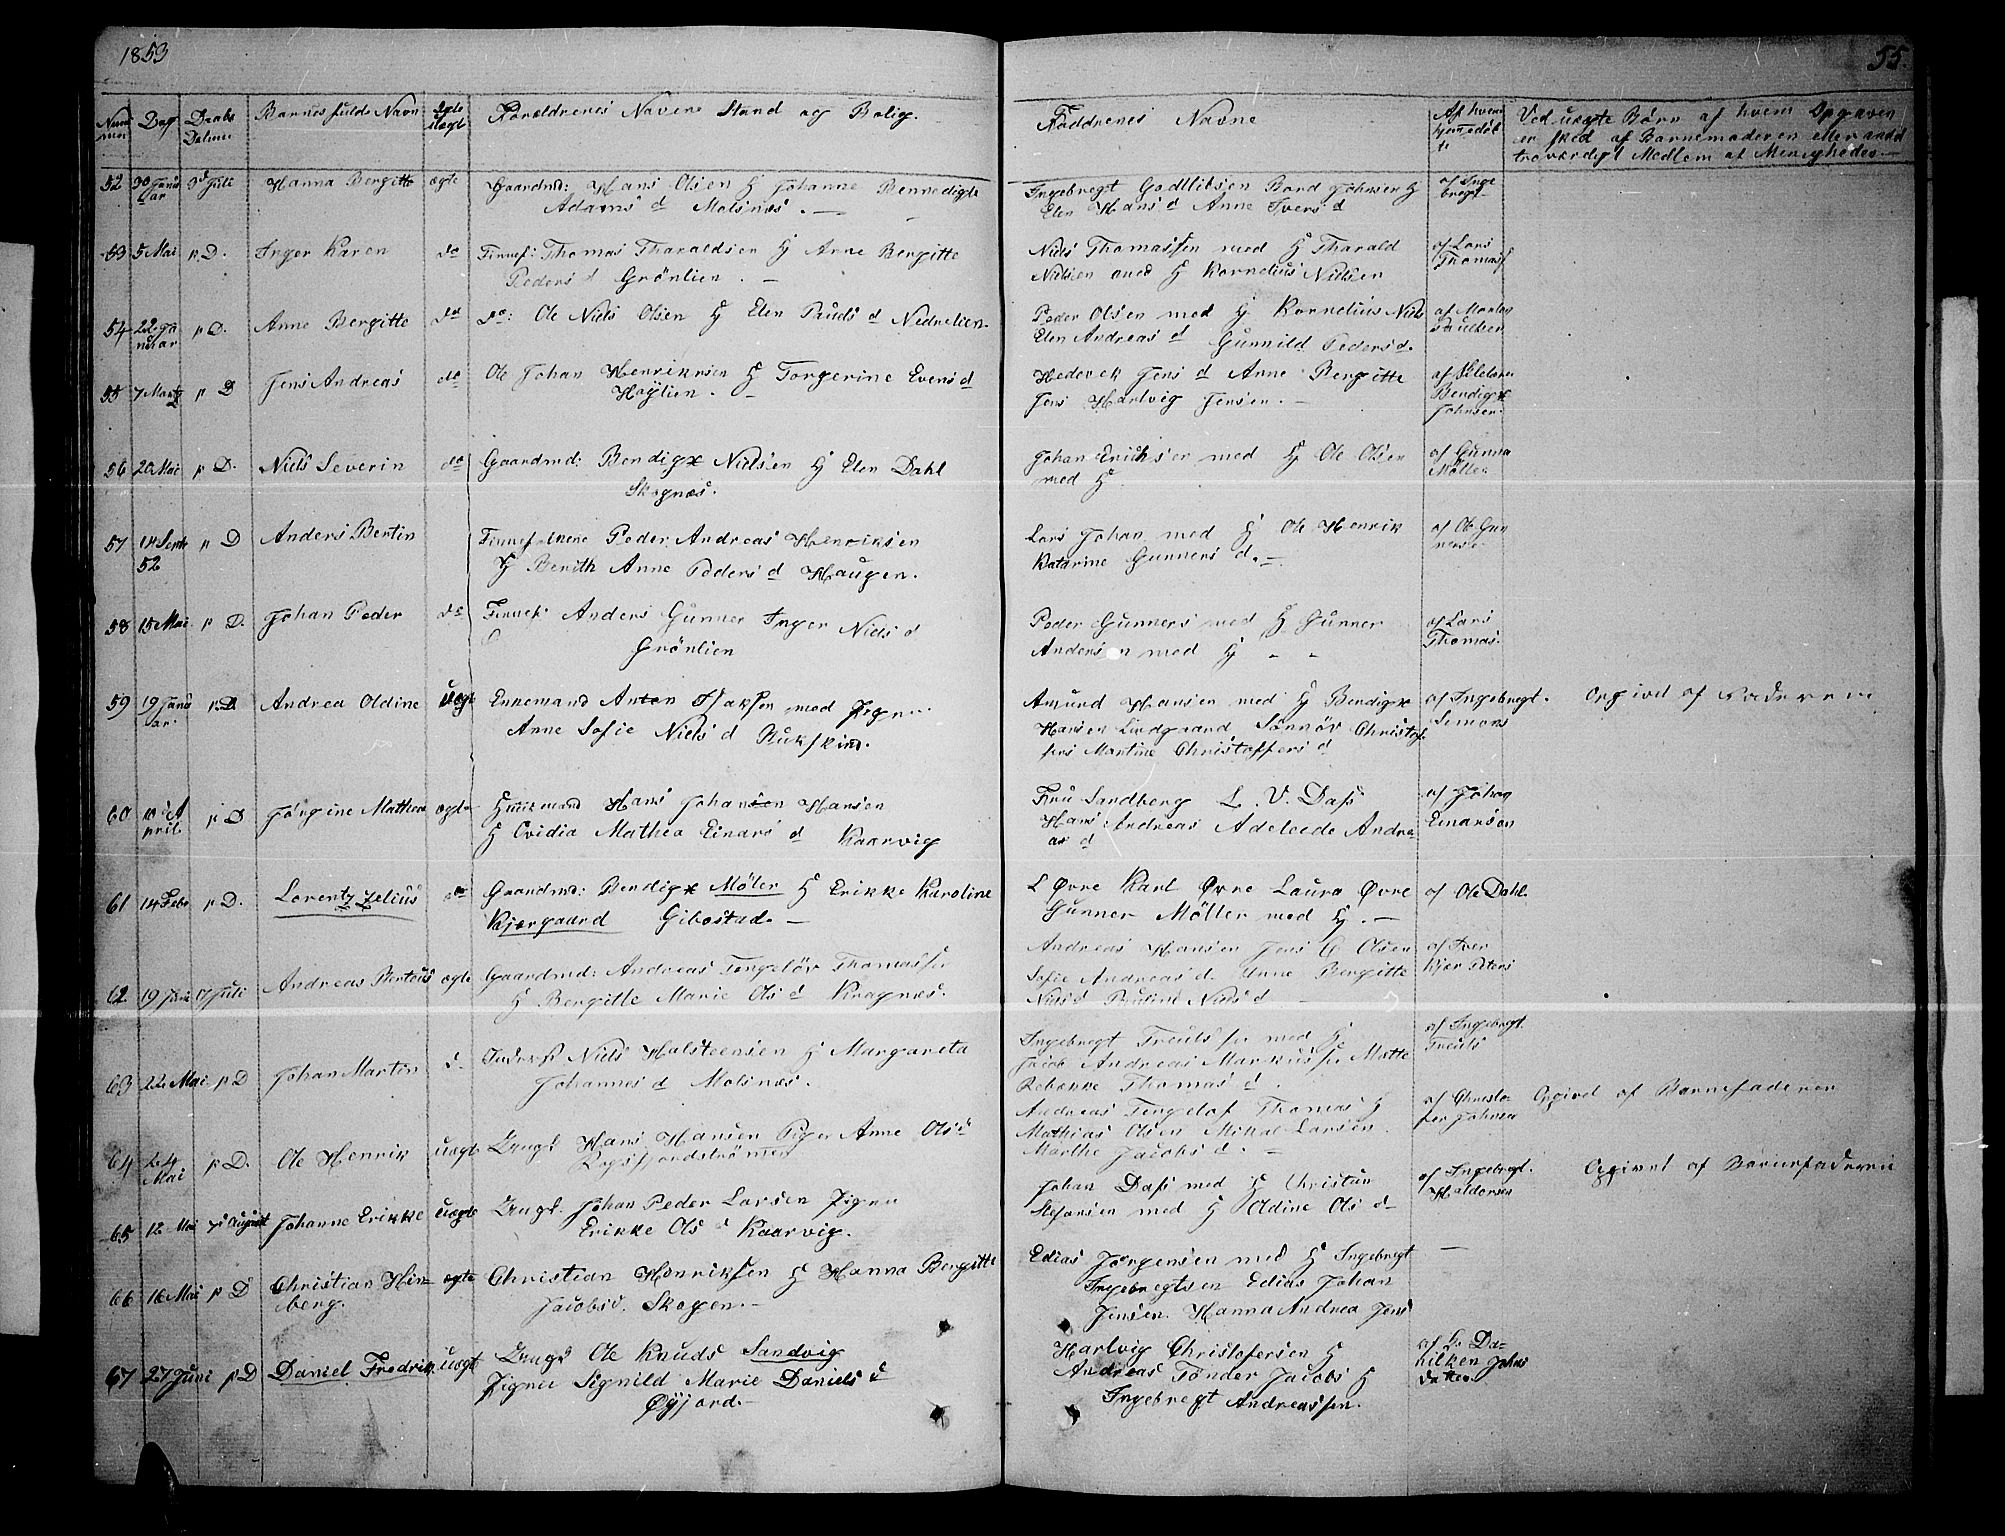 1853
55.
Num
mer
Dag
Daabs
Datum
Barnes fulde Navn
Ægte
Uægt
Foreldrenes Navne Stand og Bolig.
Faddrenes Navne
Af hvem
hjemedøb
t
Ved uægte Børn af hvem Opgaven
er sked af Barnemoderen eller andt
troværdigt Medlem af Menigheden
52 30 Janu
ar 3d Juli Hanna Bergitte ægte Gaardmd: Hans Olsen H Johanne Bennedigte
Adams d Molsnæs.
Ingebregt Godtlibsen Bord Johnsen H
Elen Hans d Anne Ivers d
af Inge
bregt
53 5 Mai p. D. Inger Karen do Finnef: Thomas Tharaldsen H Anne Bergitte
Peders d Grönlien.
Niels Thomassen med H Tharald
Nilsen med H Kornelius Nielsen
af Lars
Thomas
54 22 Ja
nuar p D. Anne Bergitte do do: Ole Niels Olsen H Elen Pouls d Nedrelien.
Peder Olsen med H Kornelius Niels
Elen Andreas d Gunnild Peders d.
af Morten
Paulsen
55 7 Marts p D Jens Andreas do Ole Johan Henriksen H Torgerine Evens d
Høglien.
Hedevek Jens d Anne Bergitte
Jens Hartvig Jensen.
af
Bendigx
Johnsen.
56 20 Mai p D. Niels Severin do Gaardmd: Bendigx Nielsen H Elen Dahl
Skognæs.
Johan Eriksen med H Ole Olsen
med H
af Gunna
Møller
57 14 Sept
52 p D Anders Bertin Finnef Peder Andreas Henriksen
H Berith Anne Peders d Haugen.
Lars Johan med H Ole Henrik
Katarine Gunners d.
af Ole Gun
nersen
58 15 Mai p D. Johan Peder do Finnef Anders Gunner Inger Niels d
Grönlien
Peder Gunners med H Gunner
Andersen med H
af Lars
Thomas.
59 19 Janu
ar. p. D. Andrea Oldine Uægte Ennemand Anton Isaksen med Pigen
Anne Sofie Niels d Rukskind.
Amund Hansen med H Bendigx
Hansen Lindgaard Sönnöv Christof
fers Martine Christoffers d
af Ingebregt.
Simons
Opgivet af
60 10 A
pril. p D Jörgine Mathea ægte Huusmand Hans Johansen Hansen
H Ovidia Mathea Einars d Kaarvig
Fru Sandberg L. V. Dass
Hans Andreas Adeleide Andre
as d
af Johan
Einarsen
61 14 Febr p D. Lorentz Zelius do Gaardmd: Bendigx Möler H Erikke Karoline
Kjergaard Gibostad.
L Øvre Karl Øvre Laura Øvre
Gunner Möller med H.
af Ole Dahl.
62 19 Juni 17 Juli Andreas Berteus ægte Gaardmd: Andreas Fengelöv Thomassen
H Bergitte Marie Ols d Kragnæs.
Andreas Hansen Jens C Olsen
Sofie Andreas d. Anne Bergitte
Niels d Pauline Niels d
af Iver
Kjer Peters
63 22 Mai p D Johan Martin d. Niels Halsteensen H Margareta
Johannes d Molsnæs.
Ingebregt Treuls med H
Andreas Markussen Mette
Rebække Thomas d.
af Ingebregt
Treuls
64 24
Mai p D. Ole Henrik Uægte Ungk Hans Hansen Pigen Anne Ols d
Rogsfjordströmen
Andreas Fengelof Thomas H
Mathias Olsen Mikal Larsen.
Marthe Jacobs d.
af Christo
fer Johnsen
Opgivet af Barnefaderen
65 12 Mai 7 August Johanne Erikke Uægte Ungk. Johan Peder Larsen Pigen
Erikke Ols d Kaarvig.
Johan Dass med H Christian
Stefansen med H Oldine Ols d
af Ingebregt.
Haldorsen
Opgivet af Barnefaderen
66 16 Mai p D Christian Hin-
berg. ægte Christian Henriksen H Hanna Bergitte
Jacobsd. Skogen.
Edias Jörgensen med H Ingebregt
Ingebregtsen Edias Johan
Jensen. Hanna Andrea Jens
67 27 Juni p D Daniel Fredrik uægt Ungk Ole Knuds Sandvig
Pigen Signild Marie Daniels d
Øyjord.
Hartvig Christofersen H
Andreas Tönder Jacobs H
Ingebregt Andreassen.
af Da-
nilken Johns
datter